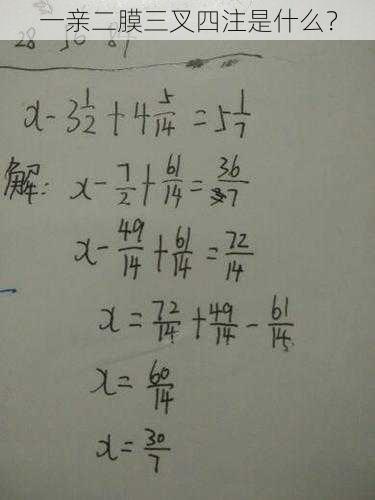 一亲二膜三叉四注是什么？
28 56 84
x - 3 1/2 + 4 5/14 = 5 1/7
解: x - 7/2 + 61/14 = 36/7
x - 49/14 + 61/14 = 72/14
x = 72/14 + 49/14 - 61/14
x = 60/14
x = 30/7